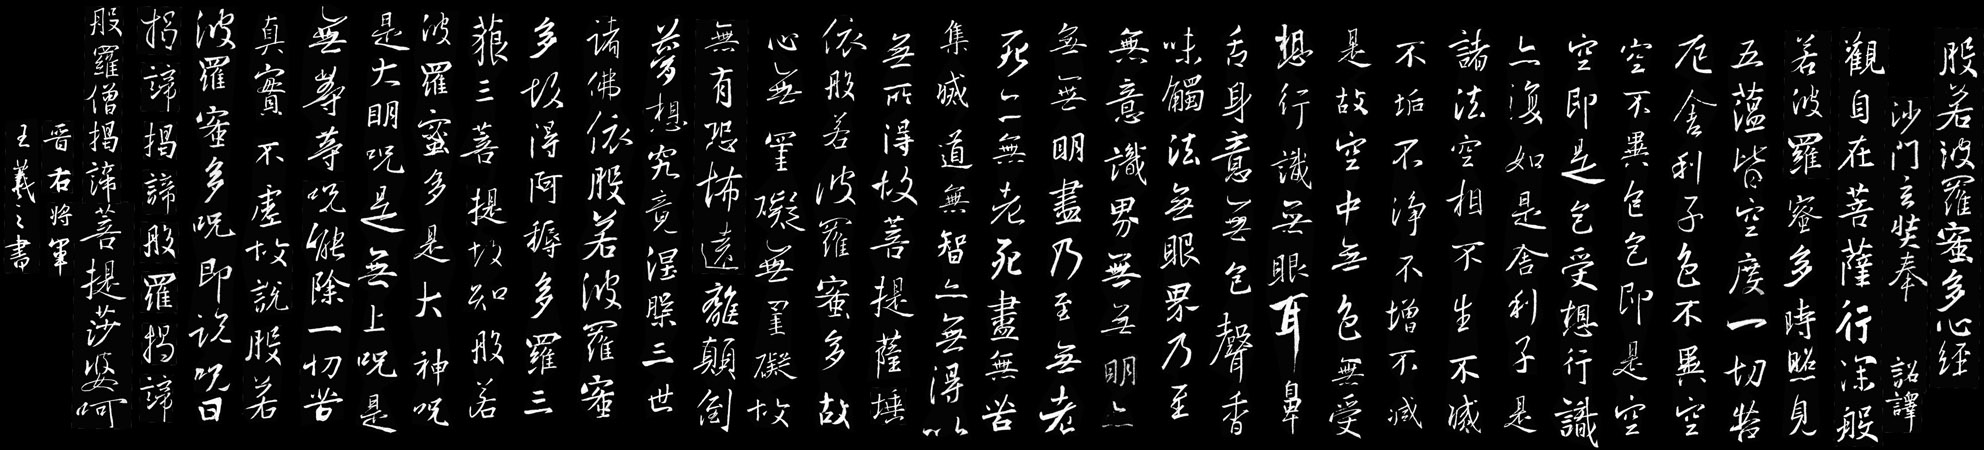 般若波羅蜜多心經
沙門玄奘奉 詔譯
觀自在菩薩行深般
若波羅蜜多時照見
五蘊皆空度一切苦
厄舍利子色不異空
空不異色色即是空
空即是色受想行識
亦復如是舍利子是
諸法空相不生不滅
不垢不淨不增不減
是故空中無色無受
想行識無眼耳鼻
舌身意無色聲香
味觸法無眼界乃至
無意識界無無明亦
無無明盡乃至無老
死亦無老死盡無苦
集滅道無智亦無得以
無所得故菩提薩埵
依般若波羅蜜多故
心無罣礙無罣礙故
無有恐怖遠離顛倒
夢想究竟涅槃三世
諸佛依般若波羅蜜
多故得阿耨多羅三
藐三菩提故知般若
波羅蜜多是大神咒
是大明咒是無上咒是
無等等咒能除一切苦
真實不虛故說般若
波羅蜜多咒即說咒曰
揭諦揭諦般羅揭諦
般羅僧揭諦菩提莎婆呵
晉右將軍
王羲之書